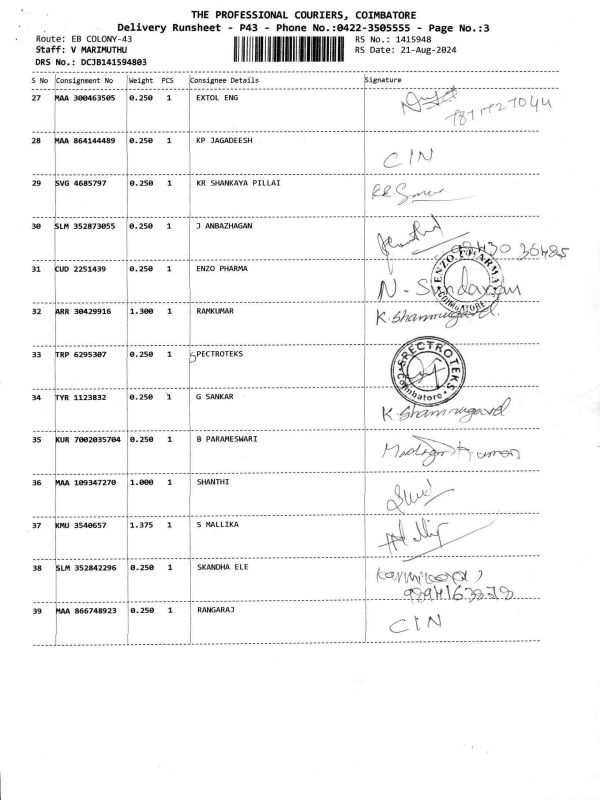 THE PROFESSIONAL COURIERS, COIMBATORE
Delivery Runsheet - P43 - Phone No.:0422-3505555 - Page No.:3
Route: EB COLONY-43 RS No.: 1415948
Staff: V MARIMUTHU RS Date: 21-Aug-2024
DRS No.: DCJB141594803
S No Consignment No Weight PCS Consignee Details Signature
27 MAA 300463505 0.250 1 EXTOL ENG
28 MAA 864144489 0.250 1 KP JAGADEESH CIN
29 SVG 4685797 0.250 1 KR SHANKAYA PILLAI
30 SLM 352873055 0.250 1 J ANBAZHAGAN
31 CUD 2251439 0.250 1 ENZO PHARMA N. Sundaram
ENZO PHARMA COIMBATORE
32 ARR 30429916 1.300 1 RAMKUMAR K. Shanmugavel.
33 TRP 6295307 0.250 1 SPECTROTEKS
SPECTROTEKS Coimbatore
34 TYR 1123832 0.250 1 G SANKAR K. Shanmugavel
35 KUR 7002035704 0.250 1 B PARAMESWARI
36 MAA 109347270 1.000 1 SHANTHI
37 KMU 3540657 1.375 1 S MALLIKA
38 SLM 352842296 0.250 1 SKANDHA ELE
39 MAA 866748923 0.250 1 RANGARAJ CIN